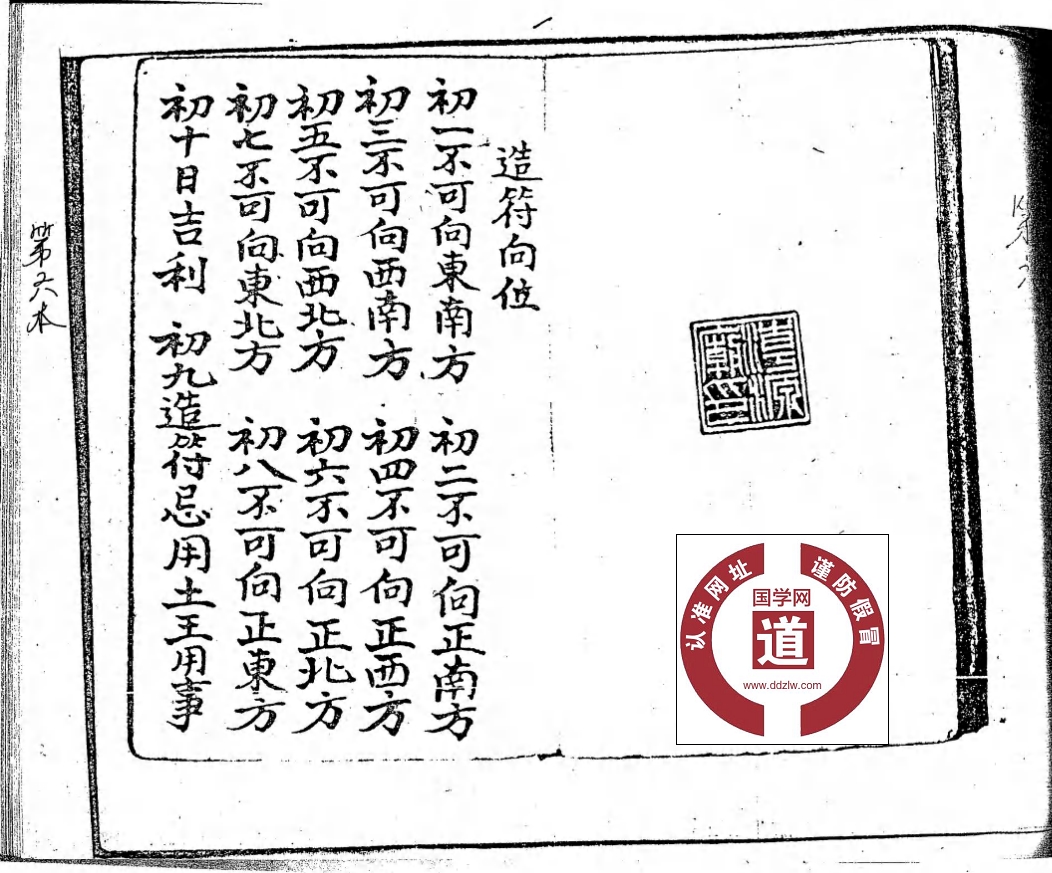 造符向位
初一不可向東南方 初二不可向正南方
初三不可向西南方 初四不可向正西方
初五不可向西北方 初六不可向正北方
初七不可向東北方 初八不可向正東方
初十日吉利 初九造符忌用土王用事
第六本
认准网址 谨防假冒
国学网
道
www.ddzlw.com